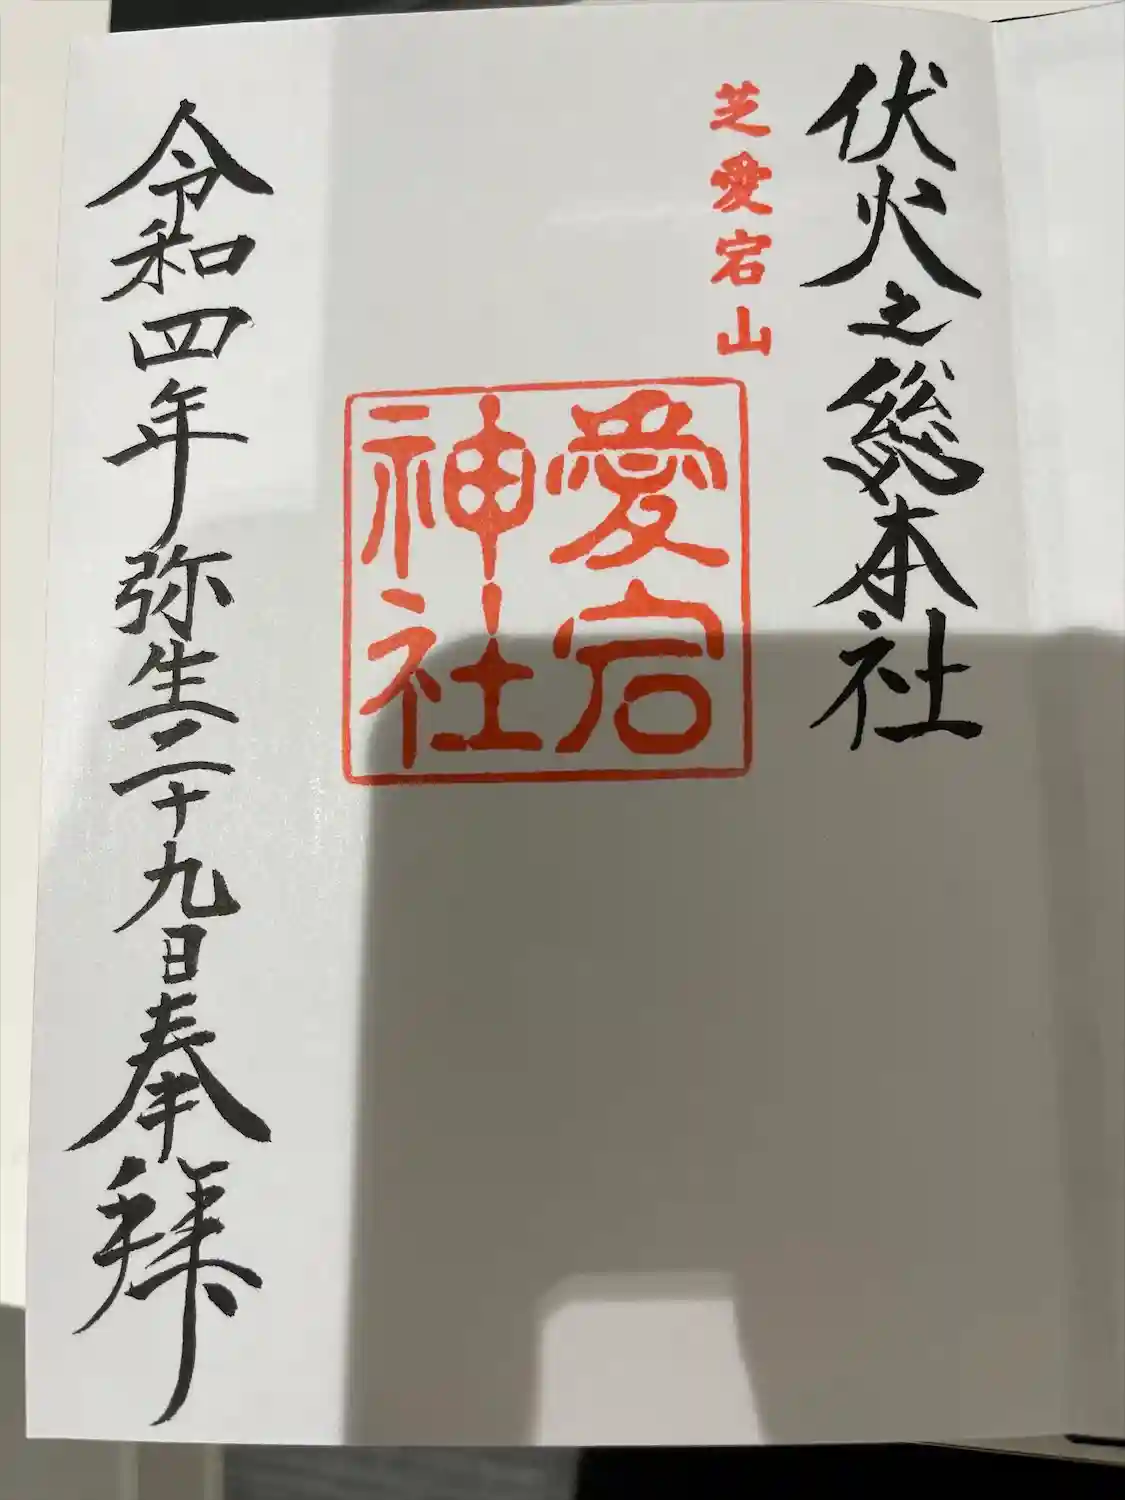 伏火之総本社
芝愛宕山
愛宕
神社
令和四年弥生二十九日奉拝